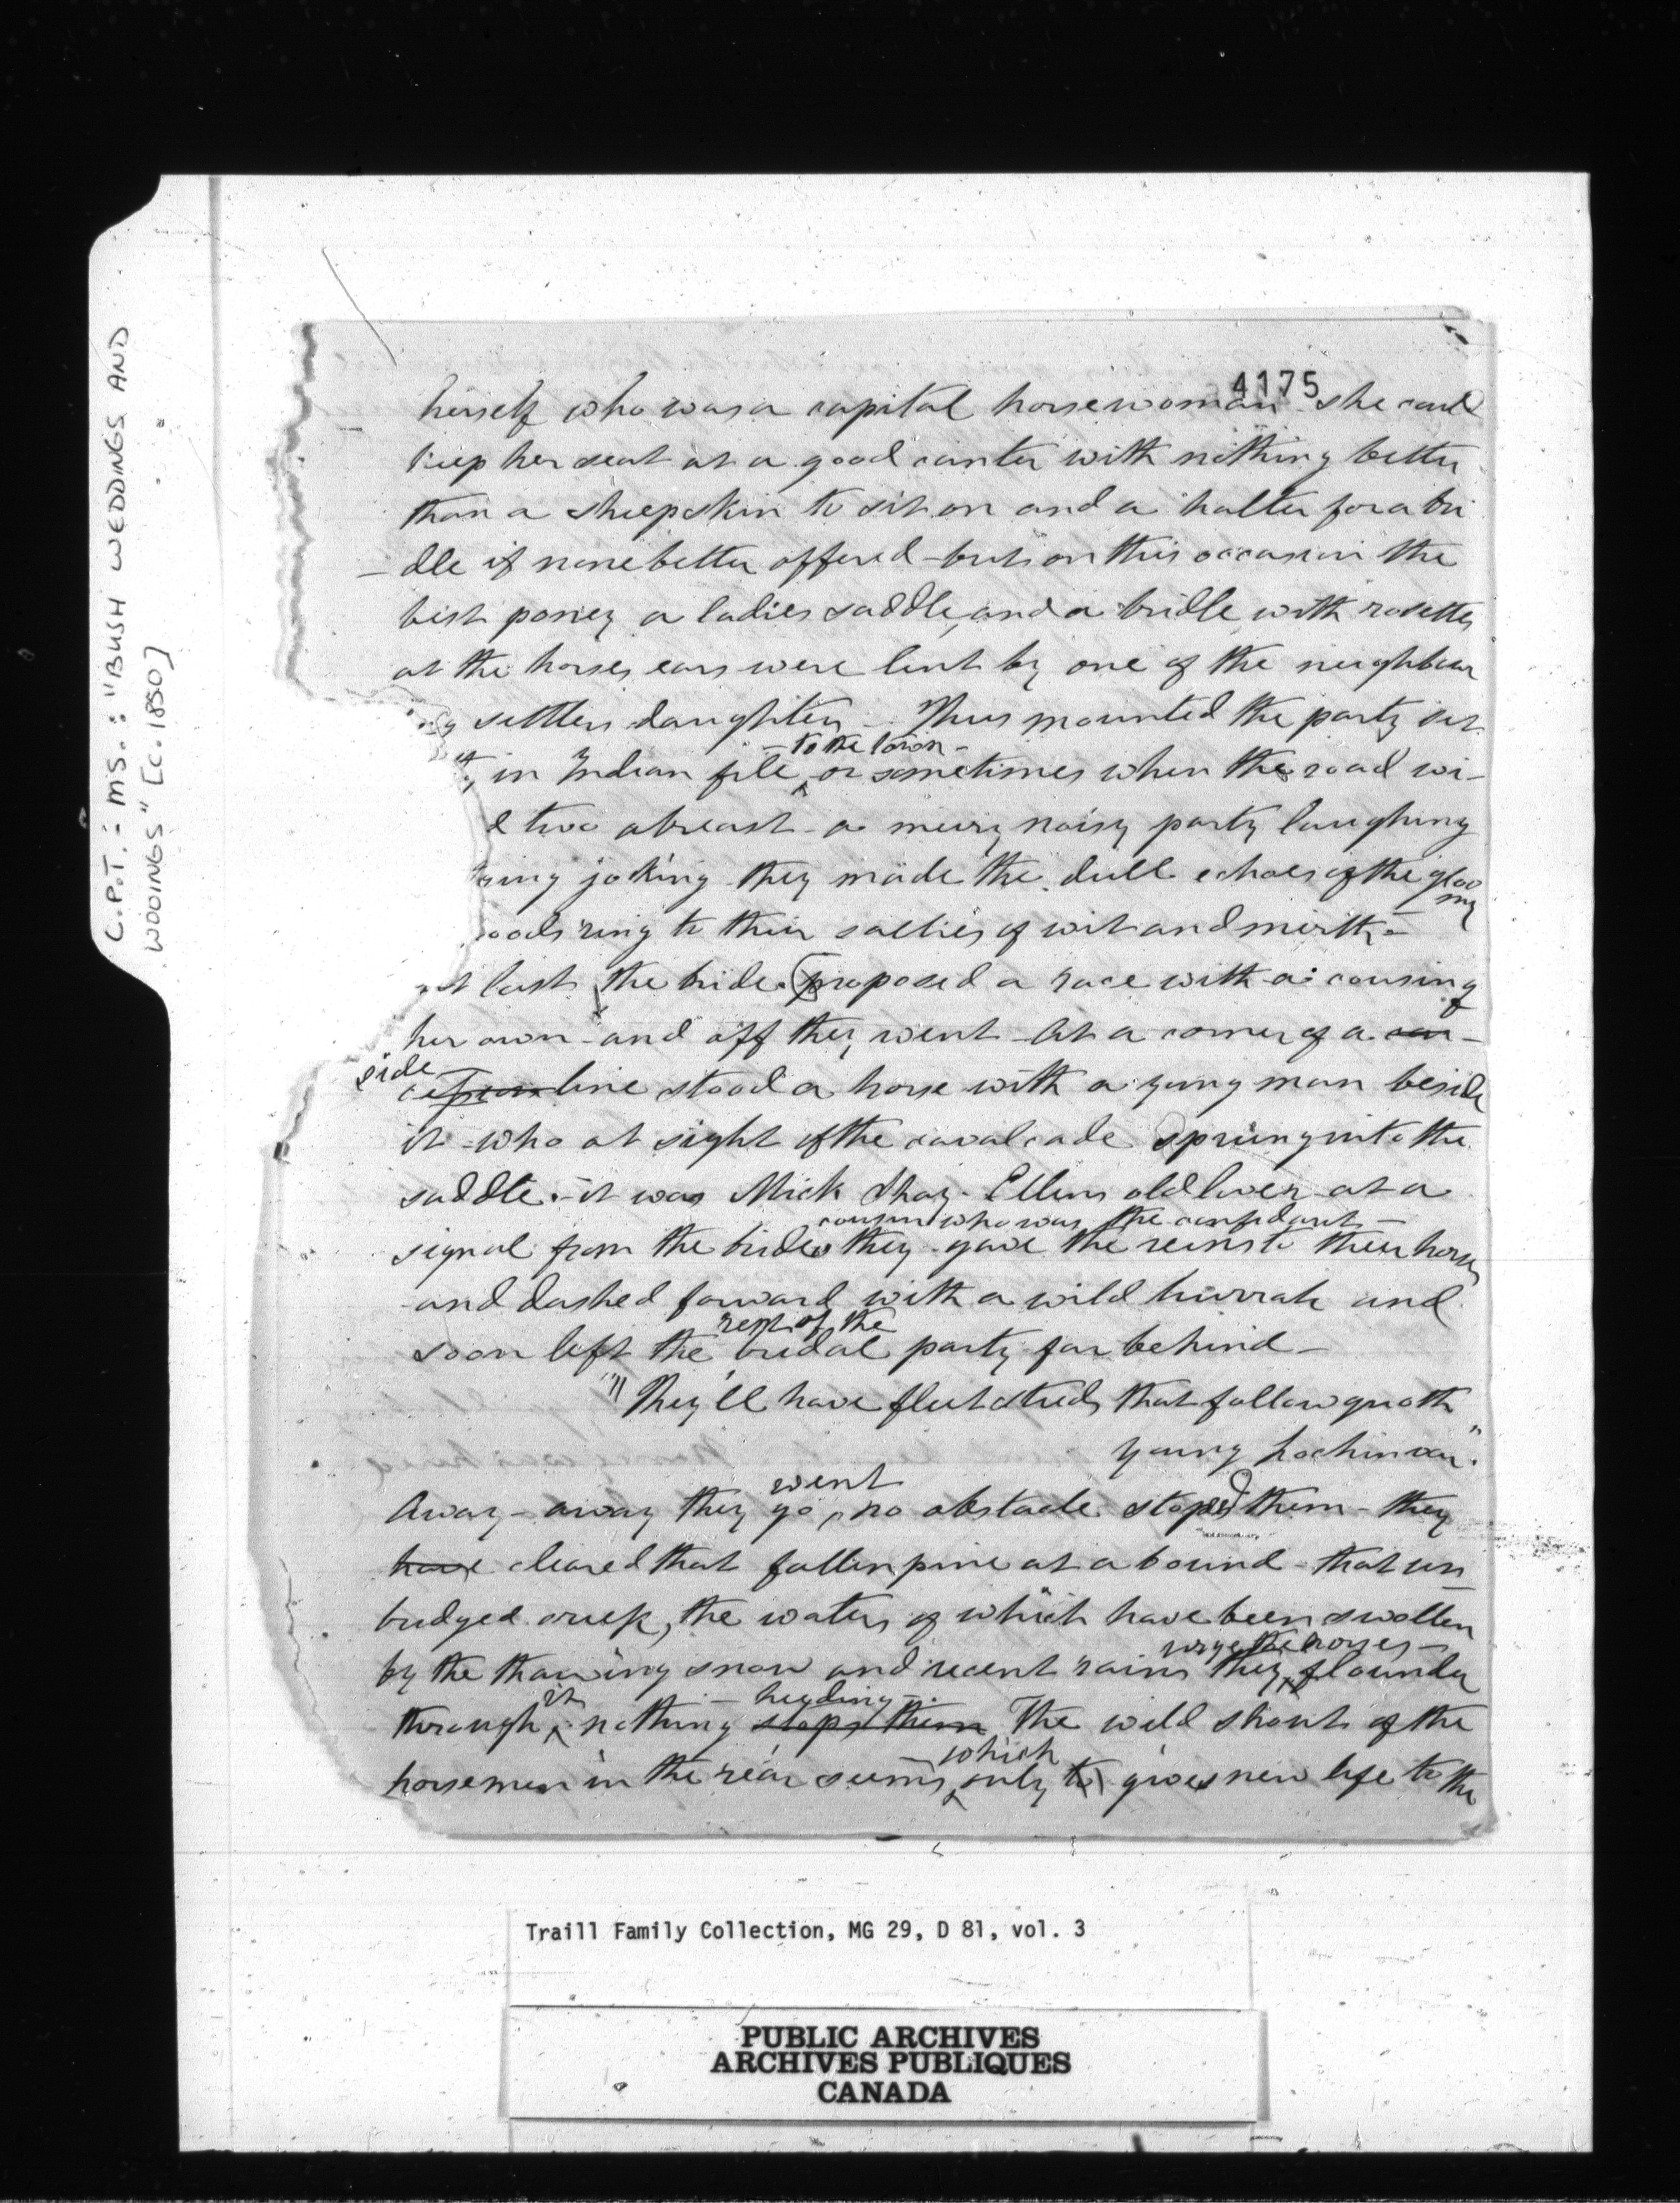 C.P.T.: MS.: "BUSH WEDDINGS AND
WOOINGS" [C. 1850]
4175
herself who was a capital horsewoman she could
keep her seat at a good canter with nothing better
than a sheepskin to sit on and a halter for a bri
-dle if none better offered - but on this occasion the
best poney a ladies saddle, and a bridle with rosettes
at the horses ears were lent by one of the neighbour
ing settlers daughters - Thus mounted the party set
- to the town -
in Indian file, or sometimes when the road wi-
d two abreast - a merry noisy party laughing
ing joking they made the dull echoes of the gloo
my
oods ring to their sallies of wit and mirth -
at last the bride (proposed a race with a cousin of
her own - and off they went - At a corner of a con-
side
cession line stood a horse with a young man beside
it - who at sight of the cavalcade sprung into the
saddle - it was Mick Shay - Ellens old lover at a
cousin who was the confidant -
signal from the brides they gave the reins to their horses
and dashed forward with a wild hurrah and
rest of the
soon left the bridal party far behind -
"They'll have fleet steeds that follow quoth
young Lochinvar".
went
Away - away they go, no obstacle stoped them - they
have cleared that fallen pine at a bound - that un
bridged creek, the waters of which have been swollen
urge the horses -
by the thawing snow and recent rains they flounder
it - heeding -
through, nothing stops them The wild shouts of the
which
horsemen in the rear seems only to gives new life to the
Traill Family Collection, MG 29, D 81, vol. 3
PUBLIC ARCHIVES
ARCHIVES PUBLIQUES
CANADA